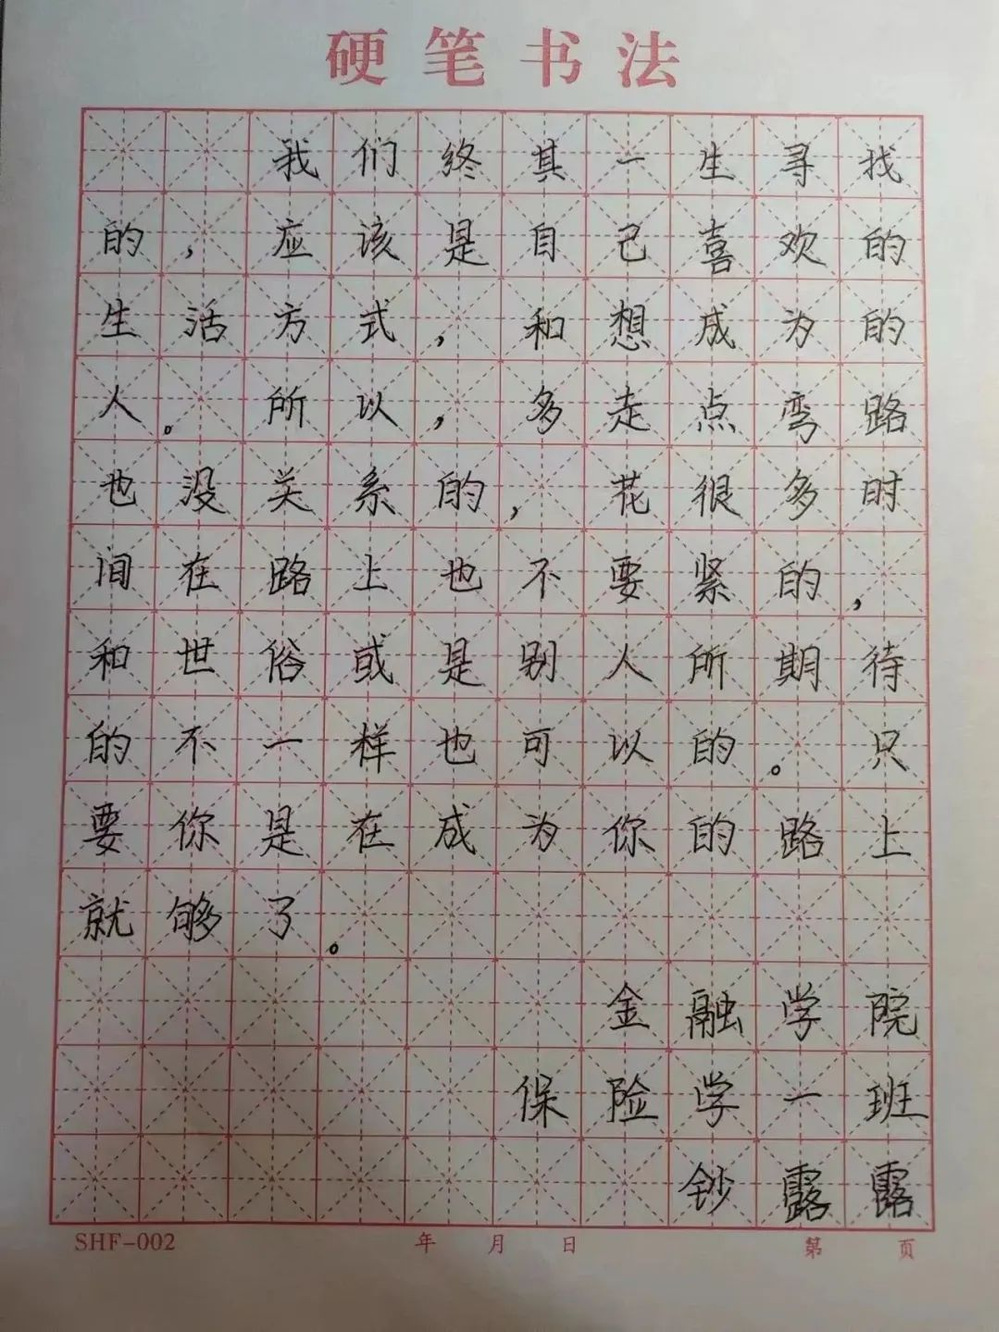 硬笔书法
我们终其一生寻找
的，应该是自己喜欢的
生活方式，和想成为的
人。所以，多走点弯路
也没关系的，花很多时
间在路上也不要紧的，
和世俗或是别人所期待
的不一样也可以的。只
要你是在成为你的路上
就够了。
金融学院
保险学一班
钞露露
SHF-002 年 月 日 第 页